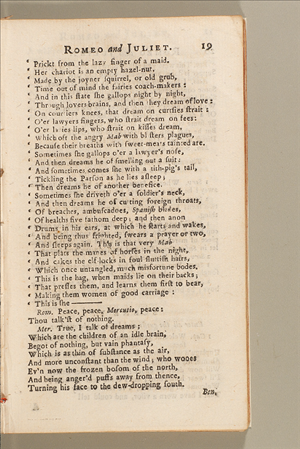 ROMEO and JULIET. 19
‘ Prickt from the lazy finger of a maid.
‘ Her chariot is an empty hazel-nut.
‘ Made by the joyner squirrel, or old grub,
‘ Time out of mind the fairies coach-makers :
‘ And in this state she gallops night by night,
‘ Through lovers brains, and then they dream of love :
‘ On courtiers knees, that dream on cursies strait :
‘ O'er lawyers fingers, who strait dream on fees:
‘ O'er ladies lips, who strait on kisses dream,
‘ Which oft the angry Mab with blisters plagues,
‘ Because their breaths with sweet-meats tainted are.
‘ Sometimes she gallops o'er a lawyer's nose,
‘ And then dreams he of smelling out a suit :
‘ And sometimes comes she with a tith-pig's tail,
‘ Tickling the Parson as he lies asleep ;
‘ Then dreams he of another benefice.
‘ Sometimes she driveth o'er a soldier's neck,
‘ And then dreams he of cutting foreign throats,
‘ Of breaches, ambuscadoes, Spanish blades,
‘ Of healths five fathom deep ; and then anon
‘ Drums in his ears, at which he starts and wakes,
‘ And being thus frighted, swears a prayer or two,
‘ And sleeps again. This is that very Mab
‘ That plats the manes of horses in the night,
‘ And cakes the elf-locks in foul sluttish hairs,
‘ Which once untangled, much misfortune bodes.
‘ This is the hag, when maids lie on their backs,
‘ That presses them, and learns them first to bear,
‘ Making them women of good carriage :
‘ This is she ———
Rom. Peace, peace, Mercutio, peace :
Thou talk'st of nothing.
Mer. True, I talk of dreams ;
Which are the children of an idle brain,
Begot of nothing, but vain phantasy,
Which is as thin of substance as the air,
And more unconstant than the wind ; who wooes
Ev'n now the frozen bosom of the north,
And being anger'd puffs away from thence,
Turning his face to the dew-dropping south.
Ben.